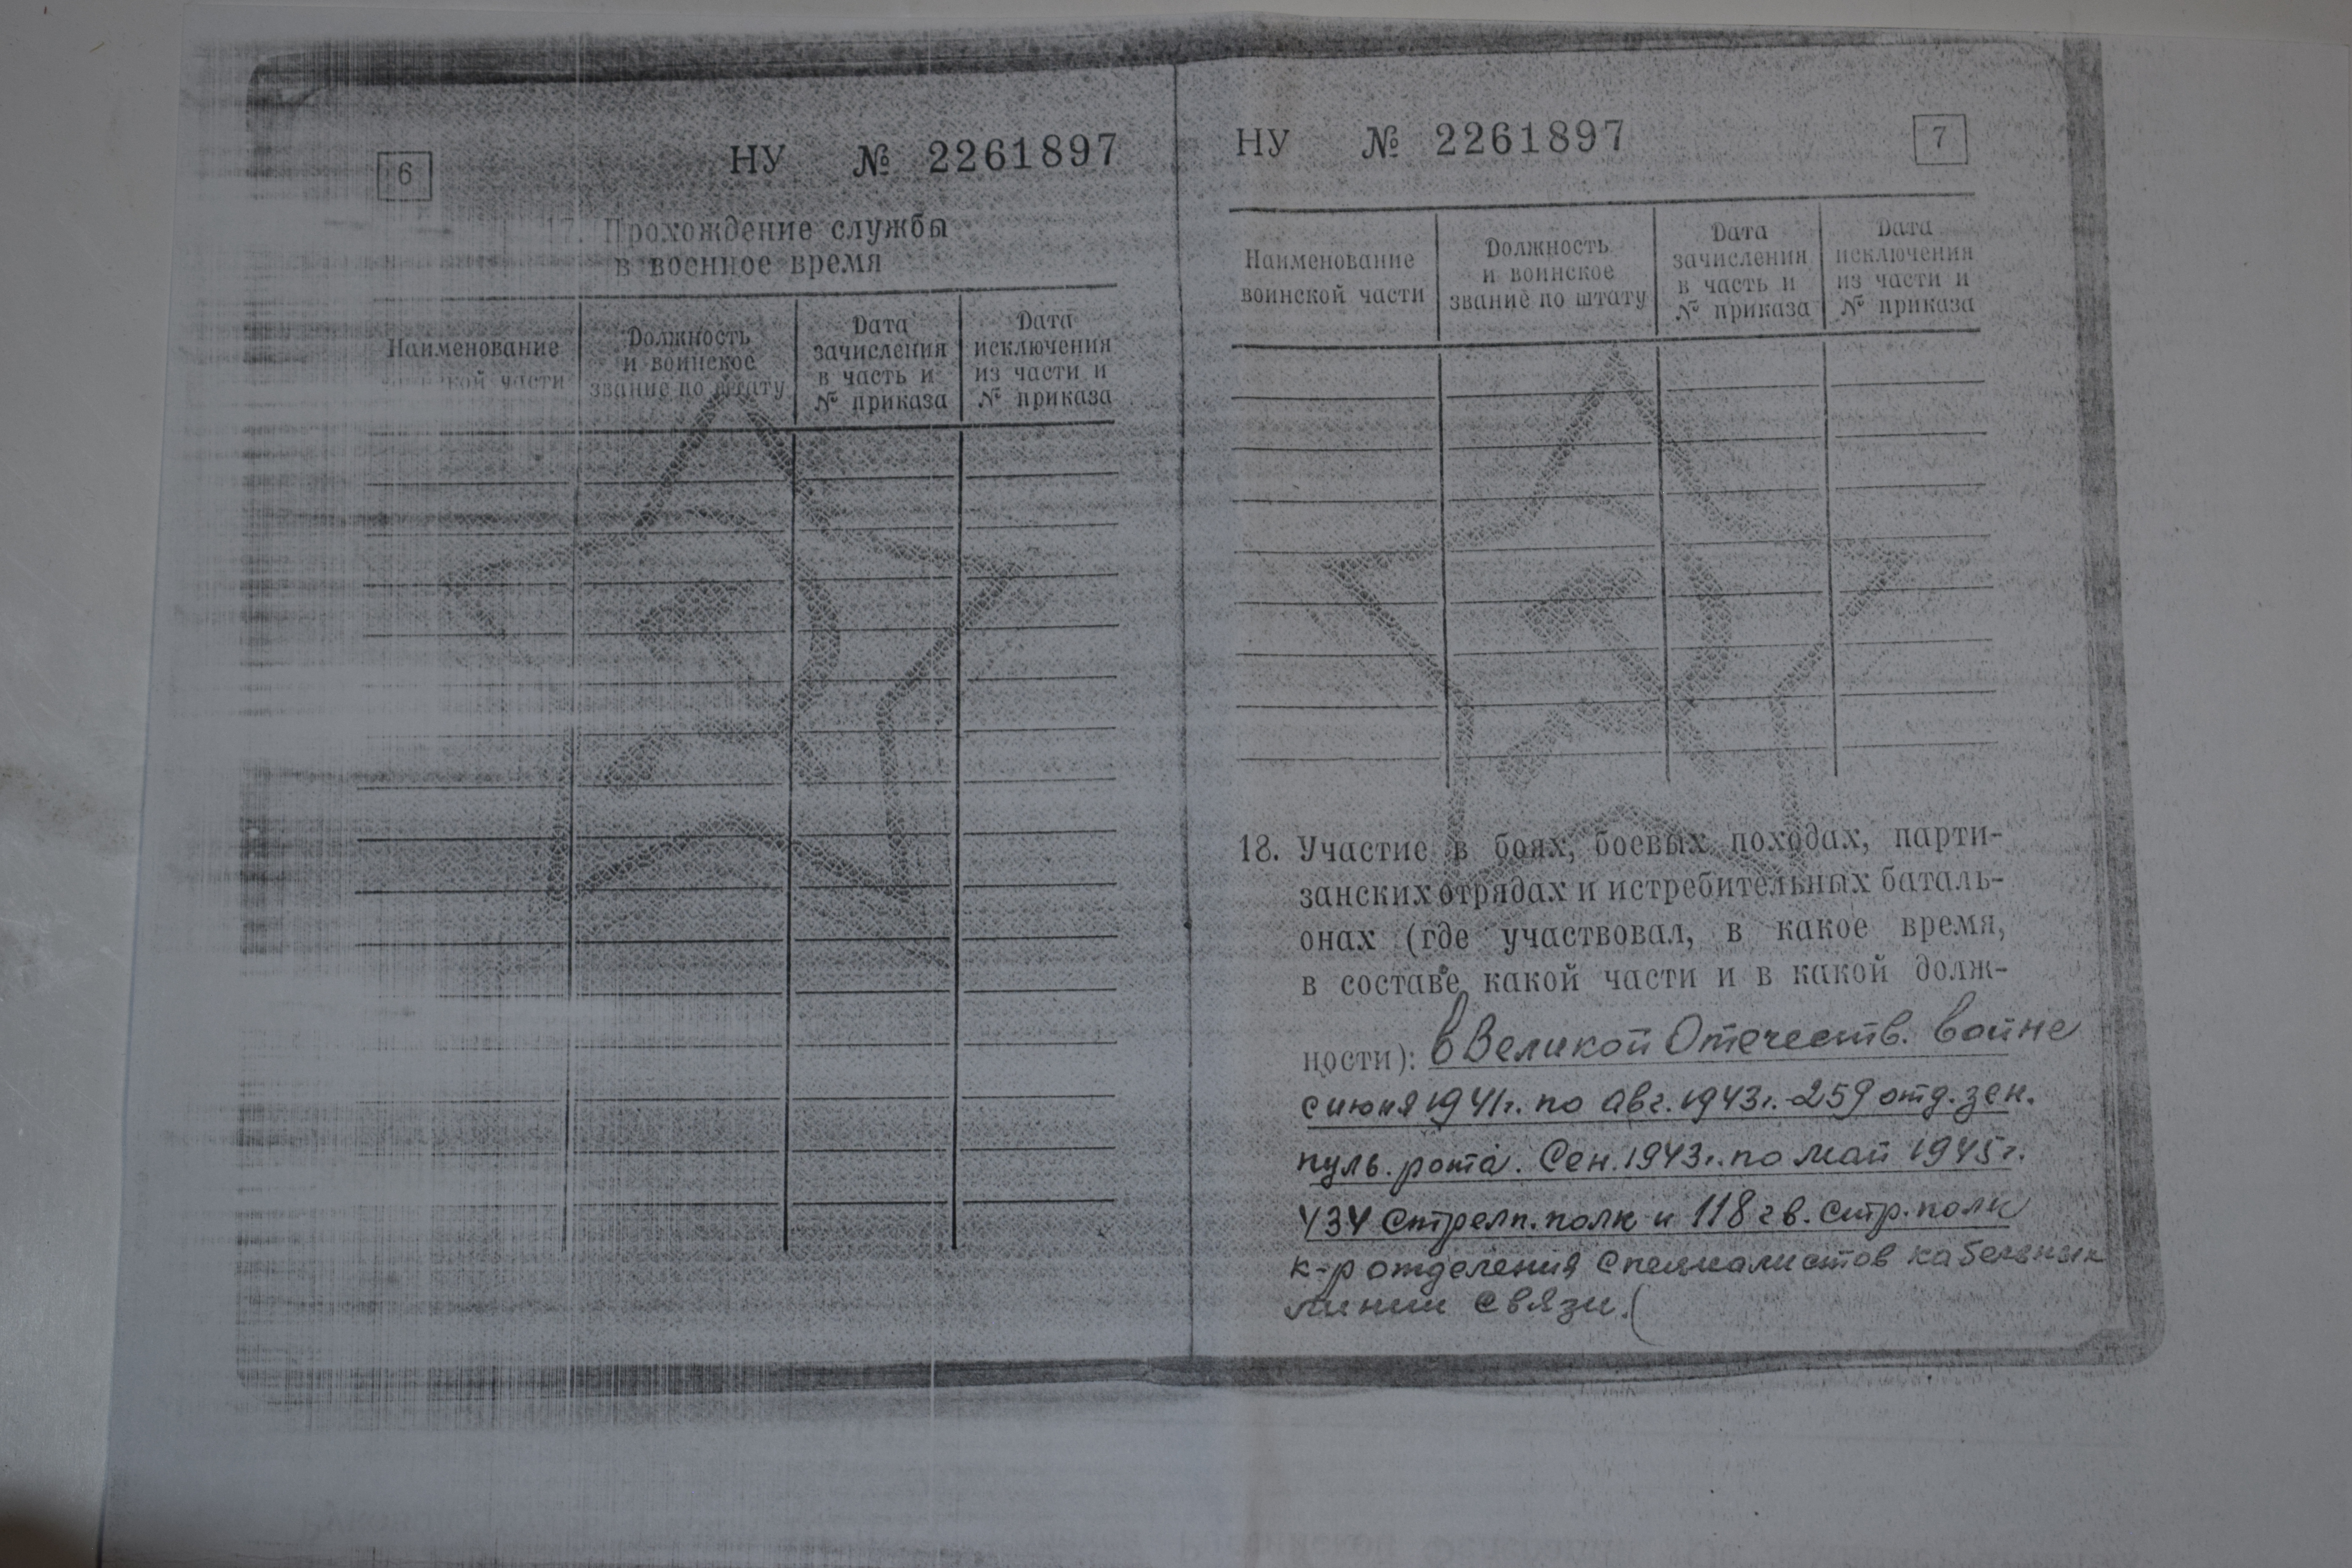 6
НУ № 2261897
17. Прохождение службы
в военное время
Наименование
воинской части
Должность
и воинское
звание по штату
Дата
зачисления
в часть и
№ приказа
Дата
исключения
из части и
№ приказа
НУ № 2261897
7
Наименование
воинской части
Должность
и воинское
звание по штату
Дата
зачисления
в часть и
№ приказа
Дата
исключения
из части и
№ приказа
18. Участие в боях, боевых походах, парти-
занских отрядах и истребительных баталь-
онах (где участвовал, в какое время,
в составе какой части и в какой долж-
ности): в Великой Отечеств. войне
с июня 1941г. по авг. 1943г. - 259 отд. зен.
пуль. рота. Сен. 1943г. по май 1945г.
434 Стрелп. полк и 118 гв. стр. полк
к-р отделения специалистов кабельных
линии связи.